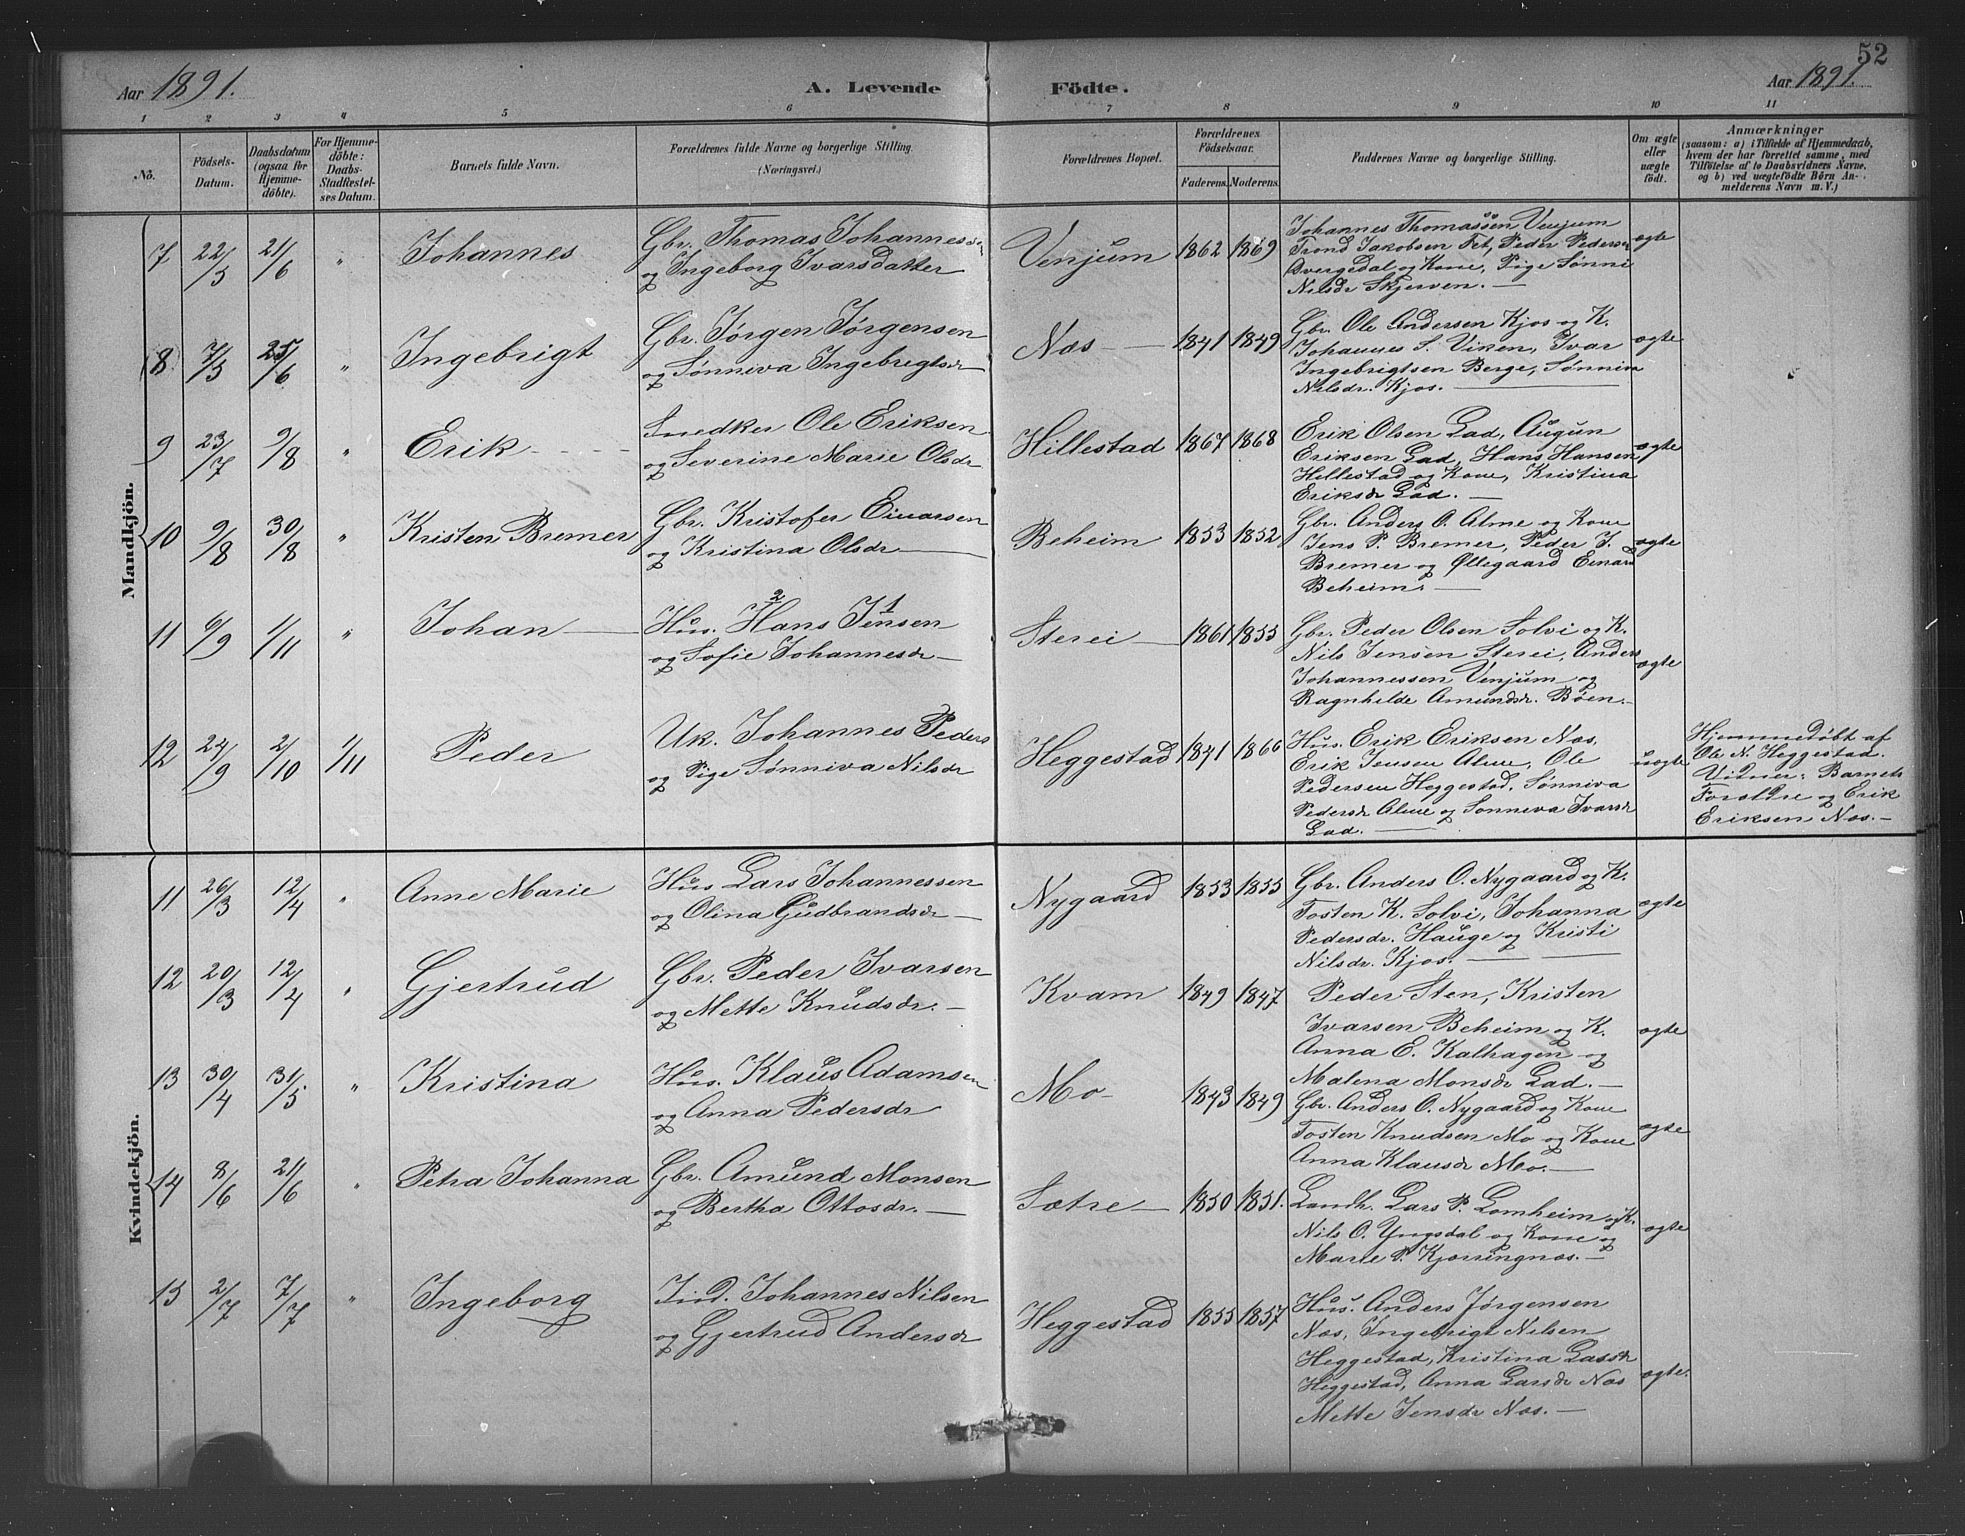 52
Aar 1891. A. Levende Födte. Aar 1891.
1 2 3 4 5 6 7 8 9 10 11
No.
Födsels-Datum.
Daabsdatum (ogsaa for Hjemmedöbte).
For Hjemmedöbte: Daabs-Stadfestelses Datum.
Barnets fulde Navn.
Forældrenes fulde Navne og borgerlige Stilling. (Næringsvei.)
Forældrenes Bopæl.
Forældrenes Födselsaar.
Faderens. Moderens.
Faddernes Navne og borgerlige Stilling.
Om ægte eller uægte födt.
Anmærkninger
(saasom: a) i Tilfælde af Hjemmedaab,
hvem der har forrettet samme, med
Tilföielse af to Daabsvidners Navne,
og b) ved uægtefödte Börn An-
melderens Navn m. V.)
Mandkjön.
7 22/5 21/6 " Johannes
Gbr. Thomas Johanness.
og Ingeborg Ivarsdatter
Venjum 1862 1869
Johannes Thomassen Venjum
Trond Jakobsen Fet, Peder Pedersen
Dvergedal og Kone, Pige Sønni
Nilsdr Skjerven. —
ægte
(8) 7/5 25/6 " Ingebrigt
Gbr. Jørgen Jørgensen
og Sønniva Ingebregtsdr
Næs — 1841 1849
Gbr. Ole Andersen Kjos og K.
Johannes S. Viken, Ivar
Ingebrigtsen Berge, Sønniva
Nilsdr. Kjos. —
ægte
9 23/7 9/8 " Erik
Snedker Ole Eriksen
og Severine Marie Olsdr
Hillestad 1867 1868
Erik Olsen Lad, Augun
Eriksen Lad, Hans Hansen
Hillestad og Kone, Kristina
Eriksdr Lad. —
ægte
10 9/8 30/8 " Kristen Bremer
Gbr. Kristofer Einarsen
og Kristina Olsdr —
Beheim 1853 1852
Gbr. Anders O. Alme og Kone
Jens P. Bremer, Peder J.
Bremer og Øllegaard Einard
Beheim. —
ægte
11 6/9 1/11 " Johan —
2 1
Hus. Hans Jensen
og Sofie Johannesdr —
Sterei — 1861 1855
Gbr. Peder Olsen Solvi og K.
Nils Jensen Sterei, Anders
Johannessen Venjum og
Ragnhilde Amundsdr. Bøen. —
ægte
12 24/9 2/10 1/11 Peder
Uk. Johannes Peders
og Pige Sønniva Nilsdr
Heggestad 1841 1866
Hus. Erik Eriksen Næs,
Erik Jensen Alme, Ole
Pedersen Heggestad, Sønniva
Pedersdr Alme og Sonneva Ivarsdr
Lad. —
uægte
Hjemmedøbt af
Ole N. Heggestad.
Vidner: Barnets
Forældre og Erik
Eriksen Næs. —
Kvindekjön.
11 26/3 12/4 " Anne Marie
Hus Lars Johannessen
og Olina Gudbrandsdr —
Nygaard 1853 1855
Gbr. Anders O. Nygaard og K.
Tosten K. Solvi, Johanna
Pedersdr. Hauge og Kristi
Nilsdr. Kjos. —
ægte
12 20/3 12/4 " Gjertrud
Gbr. Peder Ivarsen
og Mette Knudsdr. —
Kvam 1849 1847
Peder Sten, Kristen
Ivarsen Beheim og K.
Anna E. Kalhagen og
Malena Monsdr Lad. —
ægte
13 30/4 31/5 " Kristina
Hus. Klaus Adamsen
og Anna Pedersdr
Mo 1843 1849
Gbr. Anders O. Nygaard og Kone
Tosten Knudsen Mo og Kone
Anna Klausdr Mo. —
ægte
14 8/6 21/6 " Petra Johanna
Gbr. Amund Monsen
og Bertha Ottosdr. —
Sætre — 1850 1851.
Landh. Lars P. Lomheim og K.
Nils O. Yngsdal og Kone og
Marie P. Kjørringnæs. —
ægte
15 2/7 7/7 " Ingeborg
Ind. Johannes Nilsen
og Gjertrud Andersdr
Heggestad 1855 1857
Hus. Anders Jørgensen
Næs, Ingebrigt Nilsen
Heggestad, Kristina Larsdr
Heggestad, Anna Larsdr Næs
Mette Jensdr Næs. —
ægte.